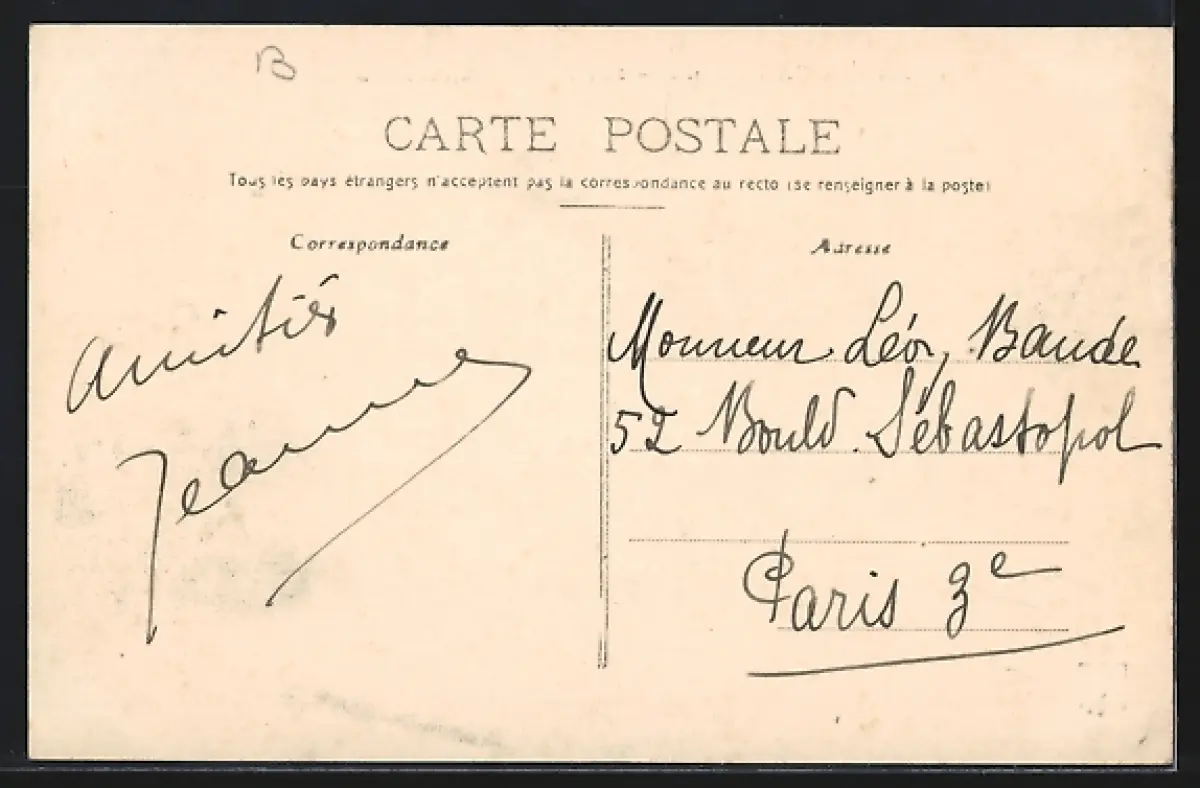 B
CARTE POSTALE
Tous les pays étrangers n'acceptent pas la correspondance au recto (se renseigner à la poste)
Correspondance
Amitiés
Jeanne
Adresse
Monsieur Léon Baude
52 Bould. Sébastopol
Paris 3e